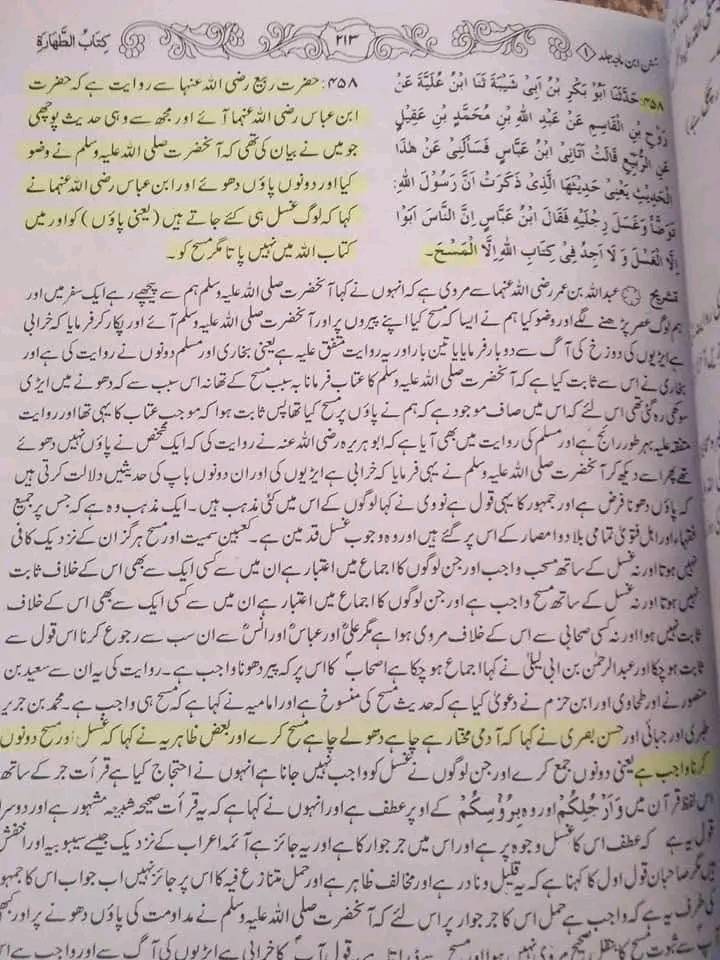 سنن ابن ماجہ جلد ۱
۲۱۳
کِتَابُ الطَّھَارَۃِ
۴۵۸: حَدَّثَنَا اَبُوْ بَکْرِ بْنُ اَبِیْ شَیْبَۃَ ثَنَا ابْنُ عُلَیَّۃَ عَنْ
رَوْحِ بْنِ الْقَاسِمِ عَنْ عَبْدِ اللہِ بْنِ مُحَمَّدِ بْنِ عَقِیْلٍ
عَنِ الرُّبَیِّعِ قَالَتْ اَتَانِی ابْنُ عَبَّاسٍ فَسَاَلَنِیْ عَنْ ھٰذَا
الْحَدِیْثِ یَعْنِیْ حَدِیْثَھَا الَّذِیْ ذَکَرَتْ اَنَّ رَسُوْلَ اللہِ
تَوَضَّأَ وَغَسَلَ رِجْلَیْہِ فَقَالَ ابْنُ عَبَّاسٍ اِنَّ النَّاسَ اَبَوْا
اِلَّا الْغَسْلَ وَ لَا اَجِدُ فِیْ کِتَابِ اللہِ اِلَّا الْمَسْحَ۔
۴۵۸: حضرت ربیع رضی اللہ عنہا سے روایت ہے کہ حضرت
ابن عباس رضی اللہ عنہما آئے اور مجھ سے وہی حدیث پوچھی
جو میں نے بیان کی تھی کہ آنحضرت صلی اللہ علیہ وسلم نے وضو
کیا اور دونوں پاؤں دھوئے اور ابن عباس رضی اللہ عنہما نے
کہا کہ لوگ غسل ہی کئے جاتے ہیں (یعنی پاؤں) کو اور میں
کتاب اللہ میں نہیں پاتا مگر مسح کو۔
تشریح عبداللہ بن عمر رضی اللہ عنہما سے مروی ہے کہ انہوں نے کہا آنحضرت صلی اللہ علیہ وسلم ہم سے پیچھے رہے ایک سفر میں اور
ہم لوگ عصر پڑھنے لگے اور وضو کیا ہم نے ایسا کہ مسح کیا اپنے پیروں پر اور آنحضرت صلی اللہ علیہ وسلم آئے اور پکار کر فرمایا کہ خرابی
ہے ایڑیوں کی دوزخ کی آگ سے دو بار فرمایا یا تین بار اور یہ روایت متفق علیہ ہے یعنی بخاری اور مسلم دونوں نے روایت کی ہے اور
بخاری نے اس سے ثابت کیا ہے کہ آنحضرت صلی اللہ علیہ وسلم کا عتاب فرمانا بہ سبب مسح کے تھا نہ اس سبب سے کہ دھونے میں ایڑی
سوکھی رہ گئی تھی اس لئے کہ اس میں صاف موجود ہے کہ ہم نے پاؤں پر مسح کیا تھا پس ثابت ہوا کہ موجب عتاب کا یہی تھا اور روایت
متفق علیہ بہر طور راجح ہے اور مسلم کی روایت میں بھی آیا ہے کہ ابو ہریرہ رضی اللہ عنہ نے روایت کی کہ ایک شخص نے پاؤں نہیں دھوئے
تھے پھر اسے دیکھ کر آنحضرت صلی اللہ علیہ وسلم نے یہی فرمایا کہ خرابی ہے ایڑیوں کی اور ان دونوں باپ کی حدیثیں دلالت کرتی ہیں
کہ پاؤں دھونا فرض ہے اور جمہور کا یہی قول ہے نووی نے کہا لوگوں کے اس میں کئی مذہب ہیں۔ ایک مذہب وہ ہے کہ جس پر جمیع
فقہاء اور اہل فتویٰ تمامی بلاد و امصار کے اس پر گئے ہیں اور وہ وجوب غسل قدمین ہے۔ کعبین سمیت اور مسح ہرگز ان کے نزدیک کافی
نہیں ہوتا اور نہ غسل کے ساتھ مسحب واجب اور جن لوگوں کا اجماع میں اعتبار ہے ان میں سے کسی ایک سے بھی اس کے خلاف ثابت
نہیں ہوتا اور نہ غسل کے ساتھ مسح واجب ہے اور جن لوگوں کا اجماع میں اعتبار ہے ان میں سے کسی ایک سے بھی اس کے خلاف
ثابت نہیں ہوا اور نہ کسی صحابی سے اس کے خلاف مروی ہوا ہے مگر علیؓ اور عباسؓ اور انسؓ سے ان سب سے رجوع کرنا اس قول سے
ثابت ہو چکا اور عبدالرحمٰن بن ابی لیلیٰ نے کہا اجماع ہو چکا ہے اصحابؓ کا اس پر کہ پیر دھونا واجب ہے۔ روایت کی یہ ان سے سعید بن
منصور نے اور طحاوی اور ابن حزم نے دعویٰ کیا ہے کہ حدیث مسح کی منسوخ ہے اور امامیہ نے کہا ہے کہ مسح ہی واجب ہے۔ محمد بن جریر
طبری اور جبائی اور حسن بصری نے کہا کہ آدمی مختار ہے چاہے دھولے چاہے مسح کرے اور بعض ظاہریہ نے کہا کہ غسل اور مسح دونوں
کرنا واجب ہے یعنی دونوں جمع کرے اور جن لوگوں نے غسل کو واجب نہیں جانا ہے انہوں نے احتجاج کیا ہے قرأت جر کے ساتھ
اس لفظ قرآن میں وَاَرْجُلِکُمْ اور وہ بِرُؤُسِکُمْ کے اوپر عطف ہے اور انہوں نے کہا ہے کہ یہ قرأت صحیحہ سبعیہ مشہور ہے اور دوسرا
قول یہ ہے کہ عطف اس کا غسل وجوہ پر ہے اور اس میں جر جوار کا ہے اور یہ جائز ہے آئمہ اعراب کے نزدیک جیسے سیبویہ اور اخفش
ہیں مگر صاحبان قول اول کا کہنا ہے کہ یہ قلیل و نادر ہے اور مخالف ظاہر ہے اور حمل متنازع فیہ کا اس پر جائز نہیں اب جواب اس کا جمہور
کی طرف یہ ہے کہ واجب ہے حمل اس کا جر جوار پر اس لئے کہ آنحضرت صلی اللہ علیہ وسلم نے مداومت کی پاؤں دھونے پر اور کبھی
سے ثبوت مسح کا بنقل صحیح مروی نہیں ہوا اور مسح سے ڈراتا ہے قول آپؐ کا خرابی ہے ایڑیوں کی آگ سے اور واجب ہے